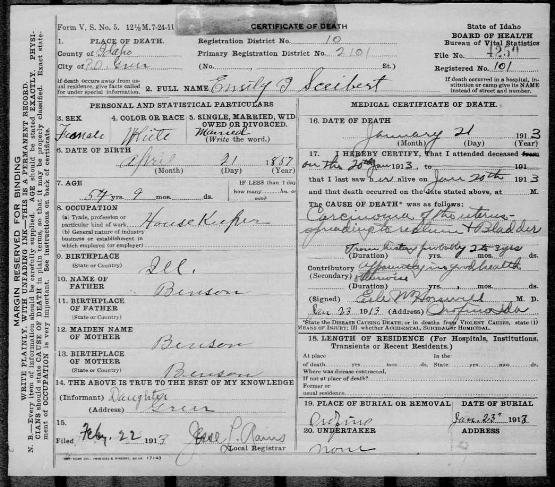 Form V. S. No. 5. 12½ M. 7-24-11
CERTIFICATE OF DEATH
State of Idaho
BOARD OF HEALTH
Bureau of Vital Statistics
1. PLACE OF DEATH.
Registration District No. 10
County of Idaho
Primary Registration District No. 2101
File No.
City of P.O. Greer (No. St.)
Registered No. 101
If death occurs away from usual residence, give facts called for under special information.
2. FULL NAME Emily J Sceibert
If death occurred in a hospital, institution or camp give its NAME instead of street and number.
PERSONAL AND STATISTICAL PARTICULARS
3. SEX Female
4. COLOR OR RACE White
5. SINGLE, MARRIED, WIDOWED OR DIVORCED. Married
(Write the word.)
6. DATE OF BIRTH
April 21 1857
(Month) (Day) (Year)
7. AGE
54 yrs. 9 mos. ds.
IF LESS than 1 day
how many hrs. or min?
8. OCCUPATION
(a) Trade, profession or particular kind of work House Keeper
(b) General nature of industry business or establishment in which employed (or employer)
9. BIRTHPLACE
(State or Country) Ill.
10. NAME OF FATHER Benson
11. BIRTHPLACE OF FATHER
(State or Country)
12. MAIDEN NAME OF MOTHER Benson
13. BIRTHPLACE OF MOTHER
(State or Country) Benson
14. THE ABOVE IS TRUE TO THE BEST OF MY KNOWLEDGE
(Informant) Daughter
(Address) Greer
15.
Filed Feby. 22 1913
Local Registrar
MEDICAL CERTIFICATE OF DEATH.
16. DATE OF DEATH
January 21 1913
(Month) (Day) (Year)
17. I HEREBY CERTIFY, That I attended deceased from
on the 20th Jan 1913, to 191
that I last saw her alive on Jan 20th 1913
and that death occurred on the date stated above, at M.
The CAUSE OF DEATH* was as follows:
Carcinoma of the uterus
spreading to rectum & Bladder
From history probably 2 yrs
(Duration) yrs. mos. ds.
Contributory Apparently in good health
(Secondary) otherwise
(Duration) yrs. mos. ds.
(Signed) M. D.
Jan 23 1913 (Address) Orofino Ida
*State the DISEASE CAUSING DEATH, or in deaths from VIOLENT CAUSES, state (1) MEANS OF INJURY; (2) whether ACCIDENTAL, SUICIDAL or HOMICIDAL.
18. LENGTH OF RESIDENCE (For Hospitals, Institutions, Transients or Recent Residents.)
At place In the
of death yrs. mos. ds. State yrs. mos. ds.
Where was disease contracted,
If not at place of death?
Former or
usual residence
19. PLACE OF BURIAL OR REMOVAL
Orofino
DATE OF BURIAL
Jan. 23 1913
20. UNDERTAKER
none
ADDRESS
MARGIN RESERVED FOR BINDING
WRITE PLAINLY, WITH UNFADING INK—THIS IS A PERMANENT RECORD.
N. B.—Every item of information should be carefully supplied. AGE should be stated EXACTLY. PHYSICIANS should state CAUSE OF DEATH in plain terms, so that it may be properly classified. Exact statement of OCCUPATION is very important. See instructions on back of certificate.